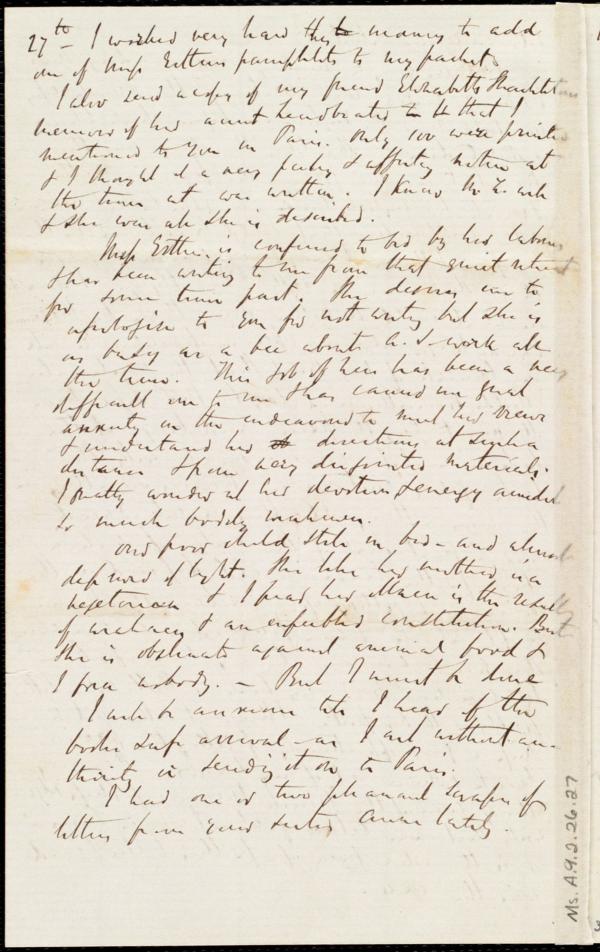 27th – I worked very hard this morning to add
one of Miss Estlin's pamphlets to my packet.
I also send a copy of my friend Elizabeth Shackleton's
memoir of her aunt that I
mentioned to you in Paris. Only 100 were printed
& I thought it a very & affecting notice at
the time it was written. I know Mr. &
& she was all she is described.
Miss Estlin is confined to bed by her labours
& has been writing to me from that quiet retreat
for some time past. She desires me to
apologise to you for not writing but she is
as busy as a bee about A.S. work all
the time. This job of hers has been a very
difficult one to me & has caused me great
anxiety in the endeavour to meet her views
& understand her directions at such a
distance & from very disjointed materials.
I really wonder at her devotion & energy amidst
so much bodily weakness.
Our poor child still in bed – and almost
deprived of light. She like her mother is a
vegetarian & I fear her illness is the result
of weakness & an enfeebled constitution. But
she is obstinate against animal food &
I force nobody. – But I must be done
I will be anxious till I hear of the
books safe arrival – as I act without au-
thority in sending it on to Paris.
I had one or two pleasant scraps of
letters from your sister Anne lately.
Ms. A.9.2.26.27